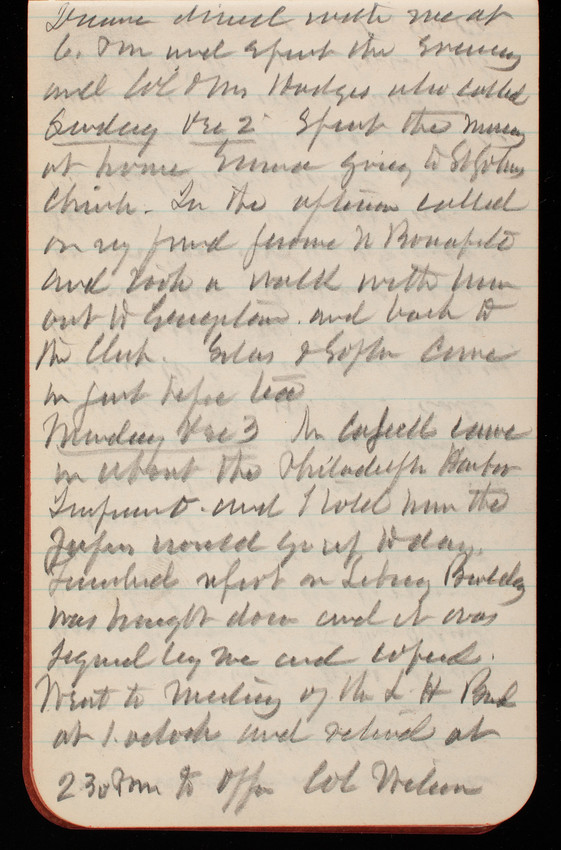 dined with me at
6. Pm and spent the Evening
and Col & Mrs Hodges who called
Sunday Dec 2 Spent the Morning
at home Emma going to St Johns
Church. In the afternoon called
on my friend Jerome N Bonaparte
and took a walk with him
out to Georgetown. and back to
the Club. & Sophie came
in just before tea
Monday Dec 3 Mr Casey came
in about the Philadelph Harbor
Improvmt. and I told him the
papers would go up to day.
Finished report on Library Building
was brought down and it was
signed by me and copied.
Went to Meeting of the L. H Bord
at 1. oclock and retired at
2 30 Pm to Offi Col Wilson